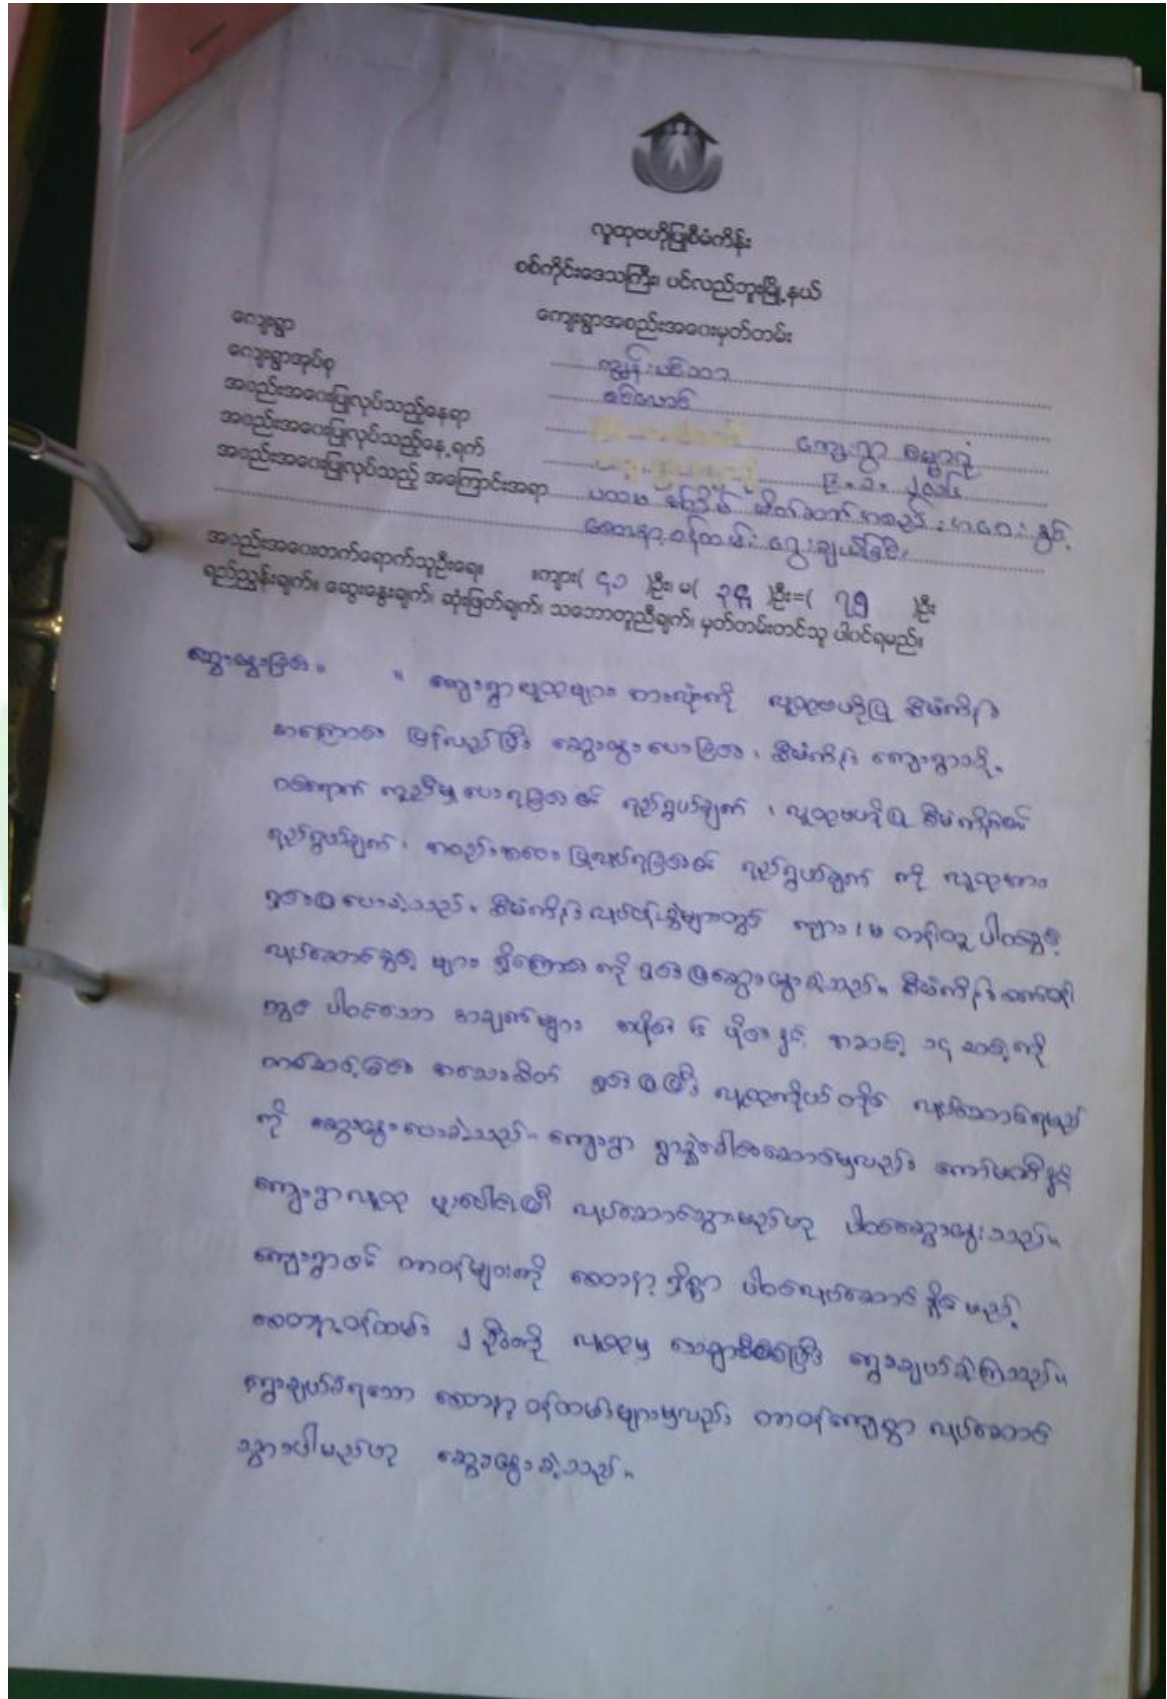 လူထုဗဟိုပြုစီမံကိန်း
စစ်ကိုင်းဒေသကြီး၊ ပင်လည်ဘူးမြို့နယ်
ကျေးရွာအစည်းအဝေးမှတ်တမ်း
ကျေးရွာ ကျွန်းပင်သာ
ကျေးရွာအုပ်စု ဇင်လောင်
အစည်းအဝေးပြုလုပ်သည့်နေရာ ကျေးရွာ ဓမ္မာရုံ
အစည်းအဝေးပြုလုပ်သည့်နေ့ရက် ၂၀၁၆
အစည်းအဝေးပြုလုပ်သည့် အကြောင်းအရာ ပထမ အကြိမ် မိတ်ဆက် အစည်းအဝေးနှင့်
စေတနာ့ဝန်ထမ်း ရွေးချယ်ခြင်း
အစည်းအဝေးတက်ရောက်သူဦးရေ။ ။ကျား( ၄၁ )ဦး၊ မ( ၃၄ )ဦး=( ၇၅ )ဦး
ရည်ညွှန်းချက်၊ ဆွေးနွေးချက်၊ ဆုံးဖြတ်ချက်၊ သဘောတူညီချက်၊ မှတ်တမ်းတင်သူ ပါဝင်ရမည်။
ဆွေးနွေးခြင်း။ ။ ကျေးရွာလူထုများ အားလုံးကို လူထုဗဟိုပြု စီမံကိန်း
အကြောင်း ပြန်လည်ပြီး ဆွေးနွေးပေးခြင်း၊ စီမံကိန်း ကျေးရွာသို့
ဝင်ရောက် ကူညီမှုပေးရခြင်း၏ ရည်ရွယ်ချက်၊ လူထုဗဟိုပြု စီမံကိန်း၏
ရည်ရွယ်ချက်၊ အစည်းအဝေး ပြုလုပ်ရခြင်း၏ ရည်ရွယ်ချက် ကို လူထုအား
ရှင်းပြပေးခဲ့သည်။ စီမံကိန်းလုပ်ငန်းစဉ်များတွင် ကျား၊ မ တန်းတူ ပါဝင်ခွင့်
လုပ်ဆောင်ခွင့် များ ရှိကြောင်း ကို ရှင်းပြဆွေးနွေးခဲ့သည်။ စီမံကိန်း
တွင် ပါဝင်သော အချက်များ အပိုင်း ၆ ပိုင်းနှင့် အဆင့် ၁၄ ဆင့်ကို
တစ်ဆင့်ခြင်း အသေးစိတ် ရှင်းပြပြီး လူထုကိုယ်တိုင် လုပ်ဆောင်ရမည်
ကို ဆွေးနွေးပေးခဲ့သည်။ ကျေးရွာ ရွာခွဲခေါင်းဆောင်မှလည်း ကော်မတီနှင့်
ကျေးရွာလူထု ပူးပေါင်းပြီး လုပ်ဆောင်သွားမည်ဟု ပါဝင်ဆွေးနွေးသည်။
ကျေးရွာ၏ တာဝန်များကို စေတနာ့ရှိစွာ ပါဝင်လုပ်ဆောင်နိုင်မည့်
စေတနာ့ဝန်ထမ်း ၂ ဦးကို လူထုမှ သေချာစိစစ်ပြီး ရွေးချယ်ခဲ့ကြသည်။
ရွေးချယ်ခံရသော စေတနာ့ဝန်ထမ်းများမှလည်း တာဝန်ကျေစွာ လုပ်ဆောင်
သွားပါမည်ဟု ဆွေးနွေးခဲ့သည်။